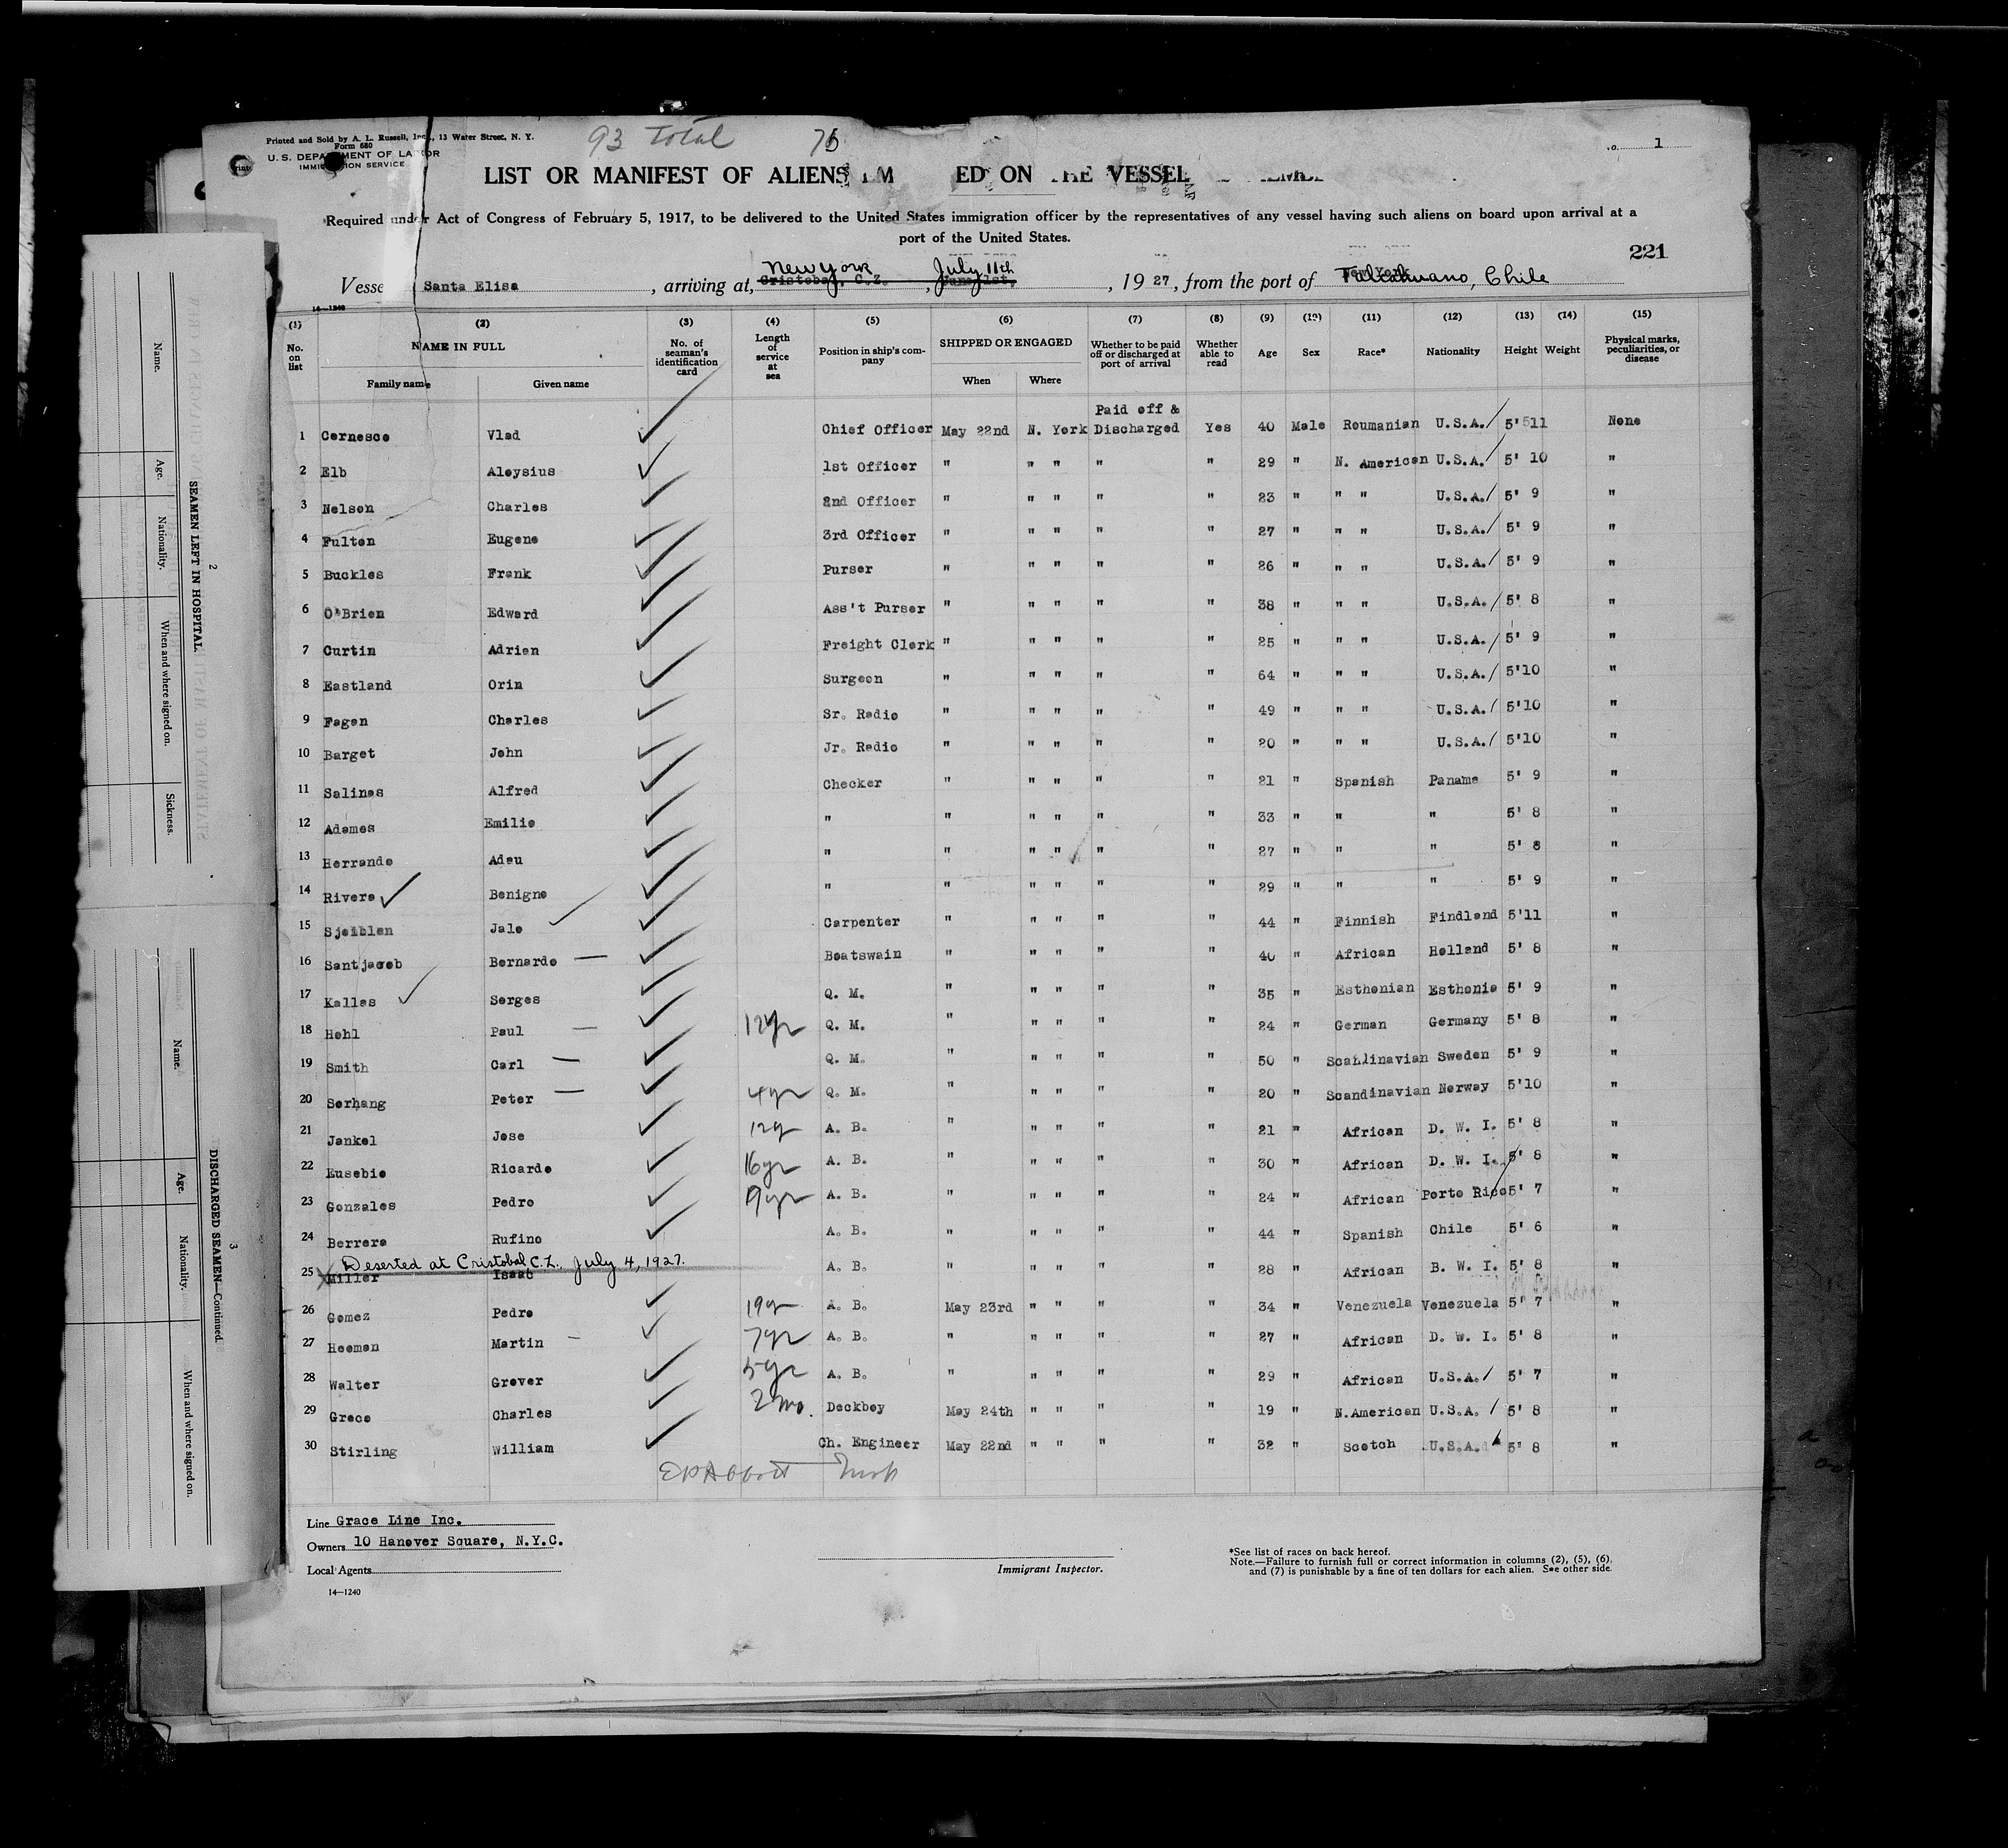 Printed and Sold by A. L. Russell, Inc., 13 Water Street, N. Y.
Form 680
U. S. DEPARTMENT OF LABOR
IMMIGRATION SERVICE
93 Total
1
LIST OR MANIFEST OF ALIENS EM ED ON THE VESSEL
Required under Act of Congress of February 5, 1917, to be delivered to the United States immigration officer by the representatives of any vessel having such aliens on board upon arrival at a
port of the United States.
221
New York July 11th
Vessel Santa Elisa, arriving at, Cristobal, C.Z., June 1st, 1927, from the port of Talcahuano, Chile
14—1240
(1) (2) (3) (4) (5) (6) (7) (8) (9) (10) (11) (12) (13) (14) (15)
No. on list NAME IN FULL Family name Given name No. of seaman's identification card Length of service at sea Position in ship's company SHIPPED OR ENGAGED When Where Whether to be paid off or discharged at port of arrival Whether able to read Age Sex Race* Nationality Height Weight Physical marks, peculiarities, or disease
Paid off &
1 Cernesco Vlad Chief Officer May 22nd N. York Discharged Yes 40 Male Roumanian U.S.A. 5'11 None
2 Elb Aloysius 1st Officer " " " " " 29 " N. American U.S.A. 5' 10 "
3 Nelson Charles 2nd Officer " " " " " 23 " " " U.S.A. 5' 9 "
4 Fulton Eugene 3rd Officer " " " " " 27 " " " U.S.A. 5' 9 "
5 Buckles Frank Purser " " " " " 26 " " " U.S.A. 5' 9 "
6 O'Brien Edward Ass't Purser " " " " " 38 " " " U.S.A. 5' 8 "
7 Curtin Adrian Freight Clerk " " " " " 25 " " " U.S.A. 5' 9 "
8 Eastland Orin Surgeon " " " " " 64 " " " U.S.A. 5'10 "
9 Fagan Charles Sr. Radio " " " " " 49 " " " U.S.A. 5'10 "
10 Barget John Jr. Radio " " " " " 20 " " " U.S.A. 5'10 "
11 Salinas Alfred Checker " " " " " 21 " Spanish Panama 5' 9 "
12 Adames Emilio " " " " " " 33 " " " 5' 8 "
13 Herrando Adau " " " " " " 27 " " " 5' 8 "
14 Rivera Benigno " " " " " " 29 " " " 5' 9 "
15 Sjoiblen Jalo Carpenter " " " " " 44 " Finnish Findland 5'11 "
16 Santjacob Bernardo Boatswain " " " " " 40 " African Holland 5' 8 "
17 Kallas Serges Q. M. " " " " " 35 " Esthonian Esthonia 5' 9 "
18 Hohl Paul 12yr Q. M. " " " " " 24 " German Germany 5' 8 "
19 Smith Carl Q. M. " " " " " 50 " Scandinavian Sweden 5' 9 "
20 Sorhang Peter 4yr Q. M. " " " " " 20 " Scandinavian Norway 5'10 "
21 Jankol Jose 12y A. B. " " " " " 21 " African D. W. I. 5' 8 "
22 Eusebio Ricardo 16yr A. B. " " " " " 30 " African D. W. I. 5' 8 "
23 Gonzales Pedro 9yr A. B. " " " " " 24 " African Porto Rico 5' 7 "
24 Berrera Rufino A. B. " " " " " 44 " Spanish Chile 5' 6 "
Deserted at Cristobal C.Z., July 4, 1927.
25 Miller Isaac A. B. " " " " " 28 " African B. W. I. 5' 8 "
26 Gomez Pedro 19yr A. B. May 23rd " " " " 34 " Venezuela Venezuela 5' 7 "
27 Heeman Martin 7yr A. B. " " " " " 27 " African D. W. I. 5' 8 "
28 Walter Grover 5yr A. B. " " " " " 29 " African U.S.A. 5' 7 "
29 Greco Charles 2 mo. Deckboy May 24th " " " " 19 " N.American U.S.A. 5' 8 "
30 Stirling William Ch. Engineer May 22nd " " " " 32 " Scotch U.S.A. 5' 8 "
Line Grace Line Inc.
Owners 10 Hanover Square, N.Y.C.
Local Agents
14—1240
Immigrant Inspector.
*See list of races on back hereof.
Note.—Failure to furnish full or correct information in columns (2), (5), (6),
and (7) is punishable by a fine of ten dollars for each alien. See other side.
2
SEAMEN LEFT IN HOSPITAL.
Name. Age. Nationality. When and where signed on. Sickness.
3
DISCHARGED SEAMEN—Continued.
Name. Age. Nationality. When and where signed on.